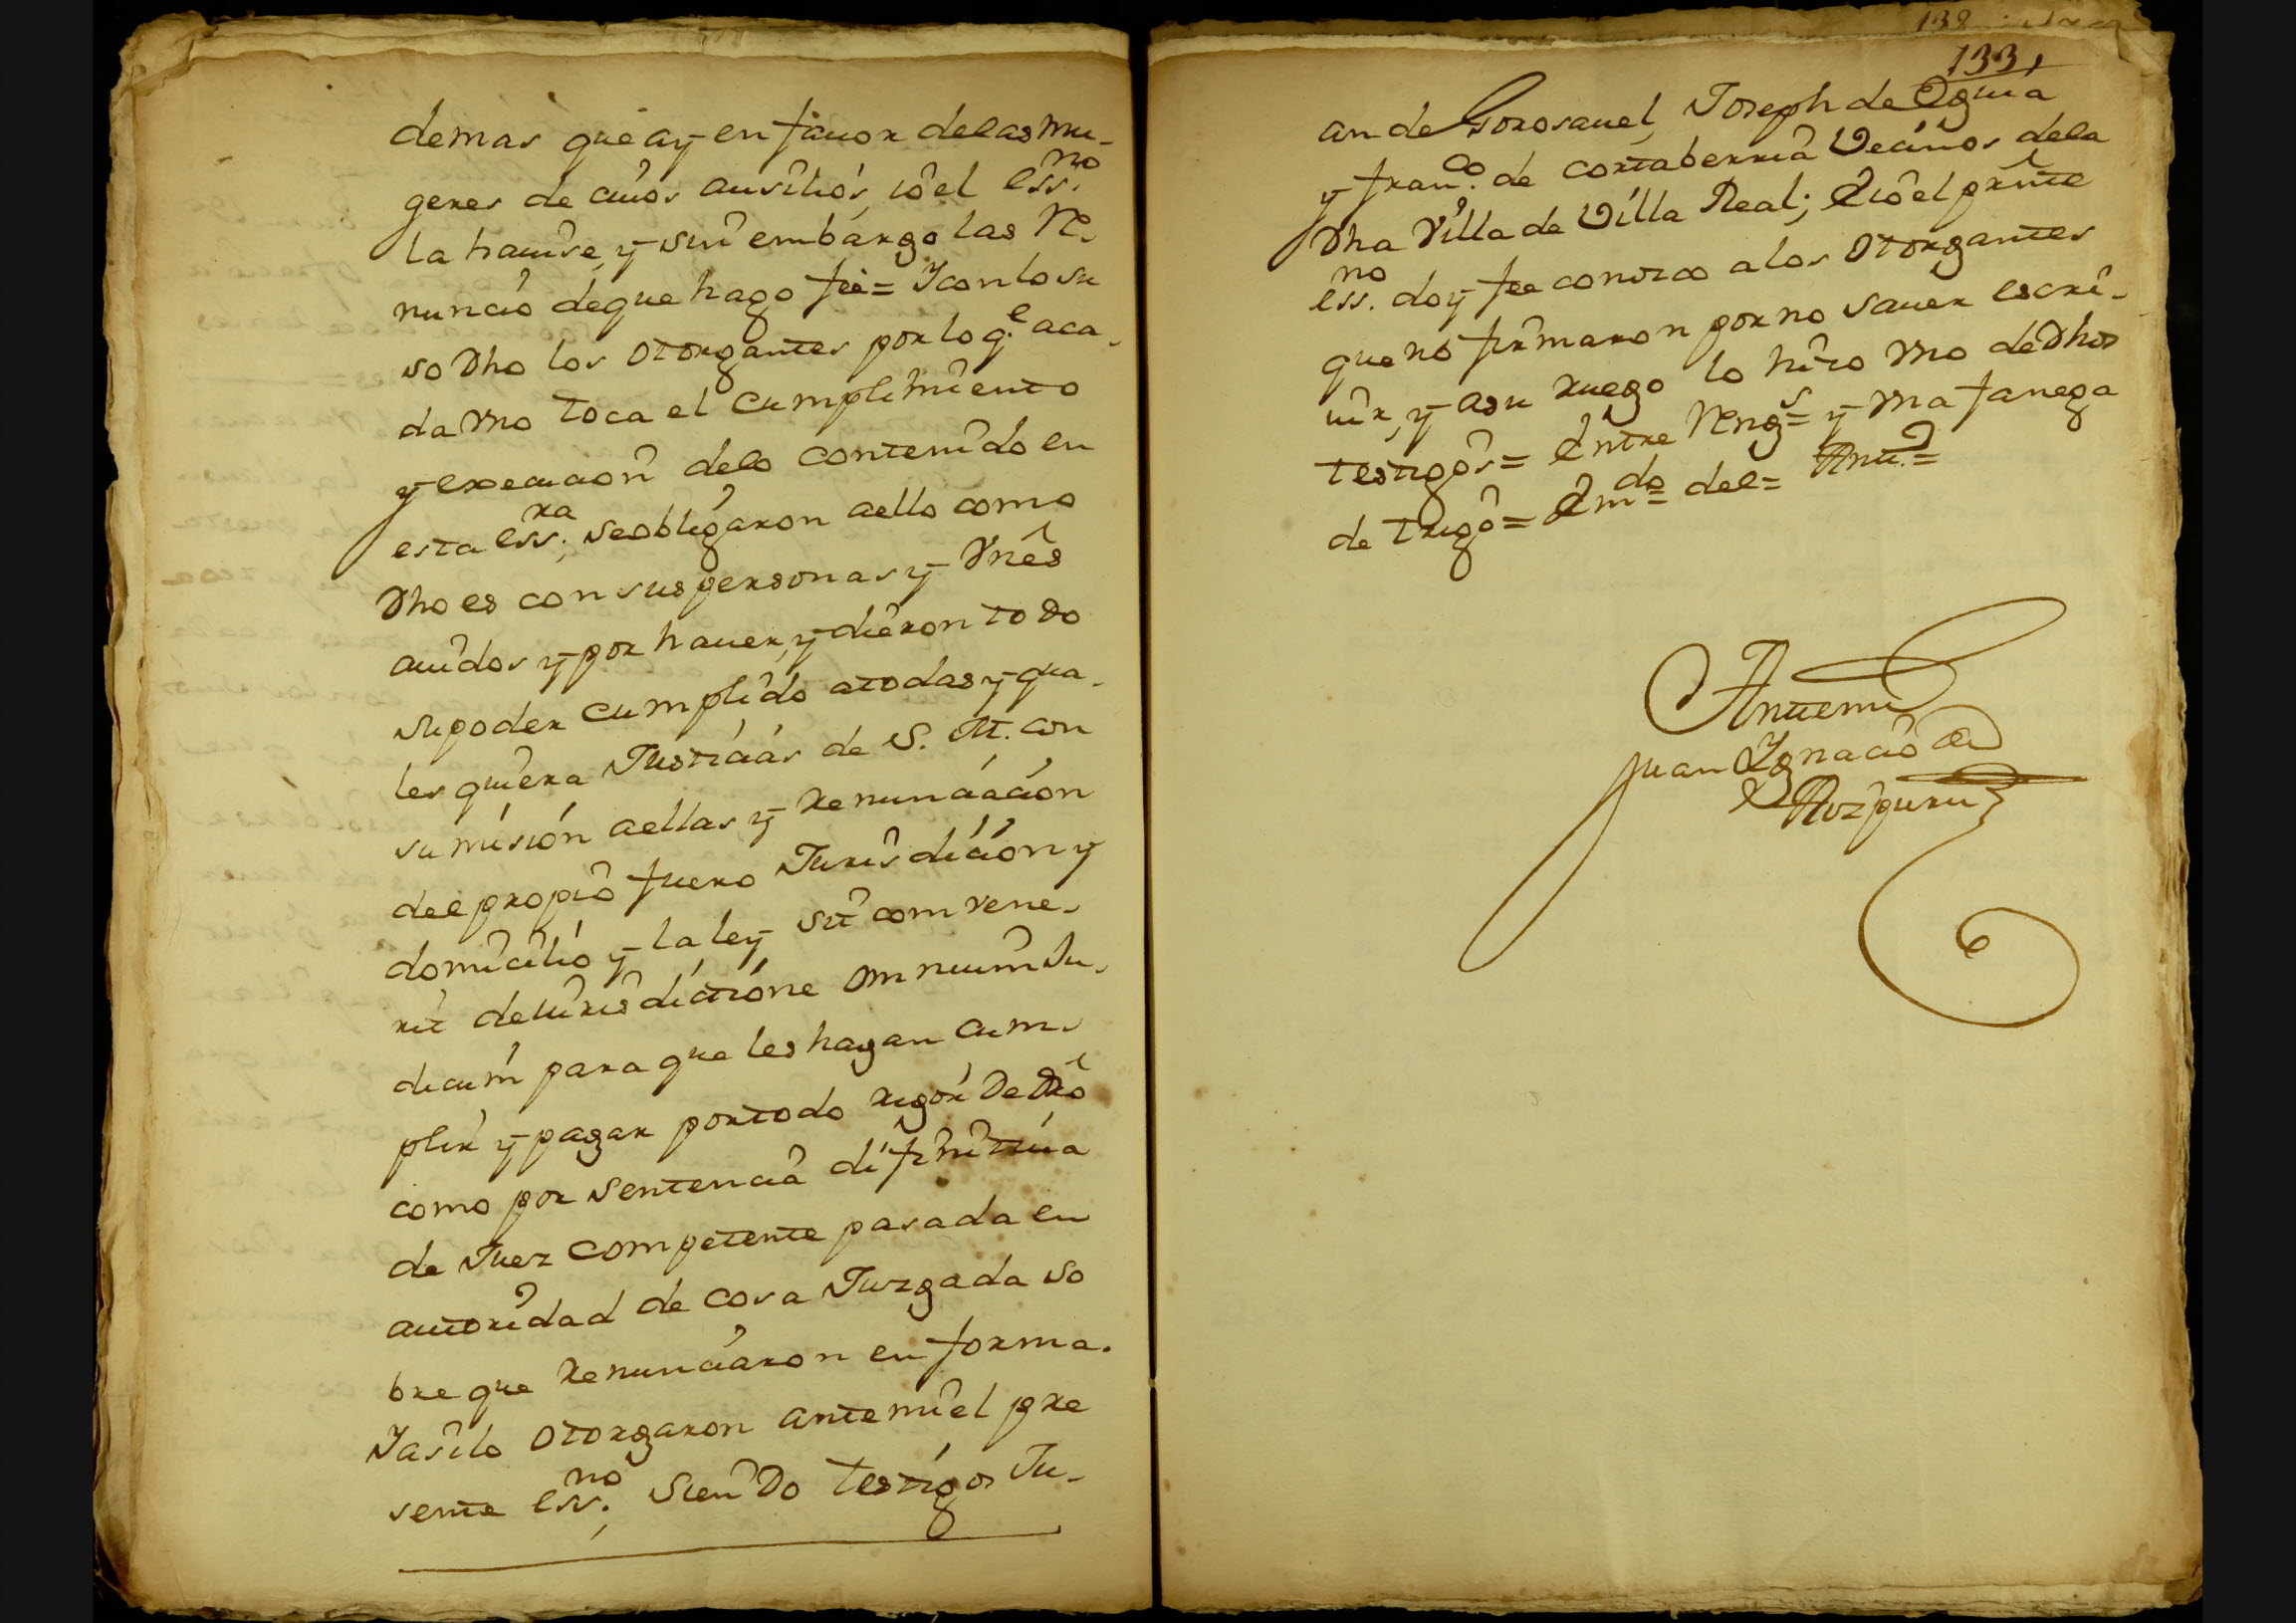 demas que ay en fauor de las mu-
geres de cuios ausilios io el ess.no
la hauise, y sin embargo las re-
nuncio de que hago fee = Y con lo su
so dho los otorgantes por lo q.e a ca-
da vno toca el cumplimiento
y execucion delo contenido en
esta ess.ra, se obligaron a ello como
dho es con sus personas y vnes
auidos y por hauer, y dieron todo
su poder cumplido a todas y qua-
les quiera Justicias de S. M. con
sumision a ellas y renunciacion
del propio fuero Jurisdicion y
domicilio y la ley sit combene-
rit de iurisdictione omnium Ju-
dicum para que les hagan cum-
plir y pagar por todo rigor de dro
como por sentencia difinitiua
de Juez competente pasada en
autoridad de cosa Juzgada so
bre que renunciaron en forma.
Y asilo otorgaron ante mi el pre
sente ess.no, siendo testigos Ju-
133,
an de Gorosauel, Joseph de
y fran.co de cortaberria Vecinos dela
dha Villa de Villa Real; E io el prnte
ess.no doy fee conozco a los otorgantes
que no firmaron por no sauer escri-
uir, y a su ruego lo hizo vno de dhos
testigos = Entre Reng.s = y vna fanega
de trigo = Em.do = del =
Ante mi
Juan Ignacio de
Aozpuru